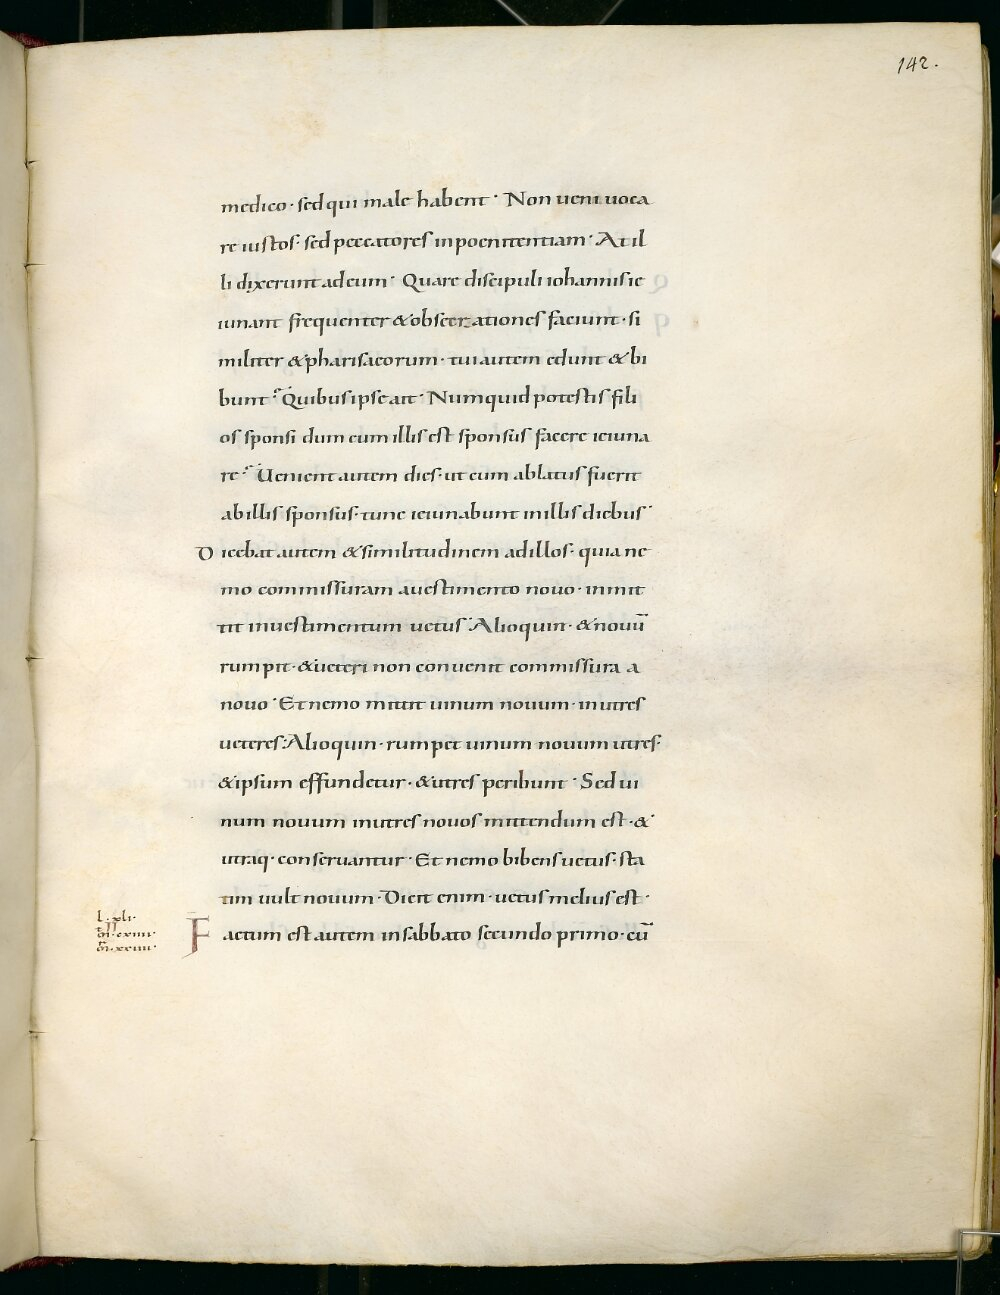 142.
medico · sed qui male habent · Non ueni uoca
re iustos · sed peccatores in poenitentiam · At il
li dixerunt ad eum · Quare discipuli iohannis ie
iunant frequenter & obsecrationes faciunt · si
militer & pharisaeorum · tui autem edunt & bi
bunt? Quibus ipse ait · Numquid potestis fili
os sponsi dum cum illis est sponsus facere ieiuna
re? Uenient autem dies · ut cum ablatus fuerit
ab illis sponsus · tunc ieiunabunt in illis diebus ·
Dicebat autem & similitudinem ad illos · quia ne
mo commissuram a uestimento nouo · inmit
tit in uestimentum uetus · Alioquin · & nouū
rumpit · & ueteri non conuenit commissura a
nouo · Et nemo mittit uinum nouum · in utres
ueteres · Alioquin · rumpet uinum nouum utres ·
& ipsum effundetur · & utres peribunt · Sed ui
num nouum in utres nouos mittendum est · &
utraq · conseruantur · Et nemo bibens uetus · sta
tim uult nouum · Dicit enim · uetus melius est ·
l · xli ·
Factum est autem in sabbato secundo primo · cū